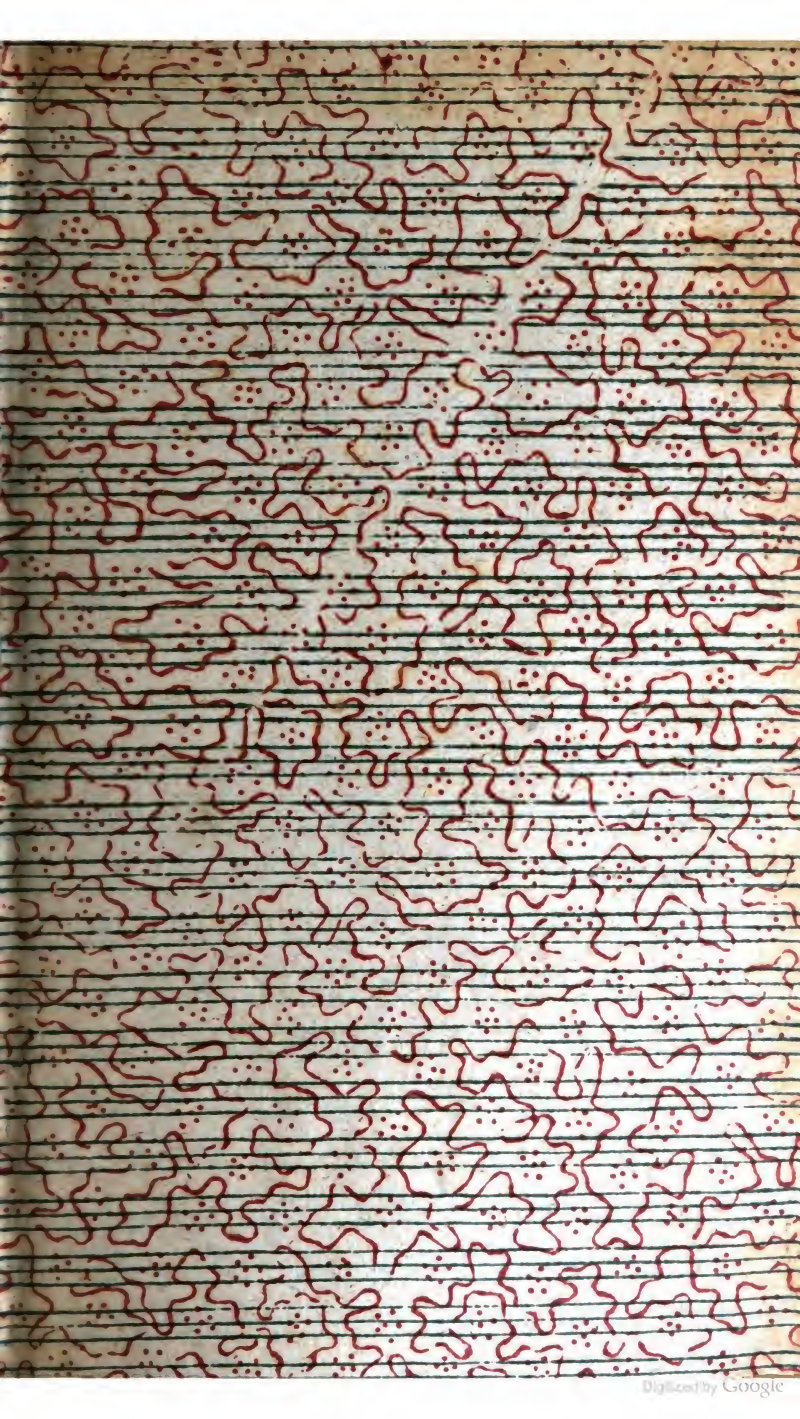 Digitized by Google